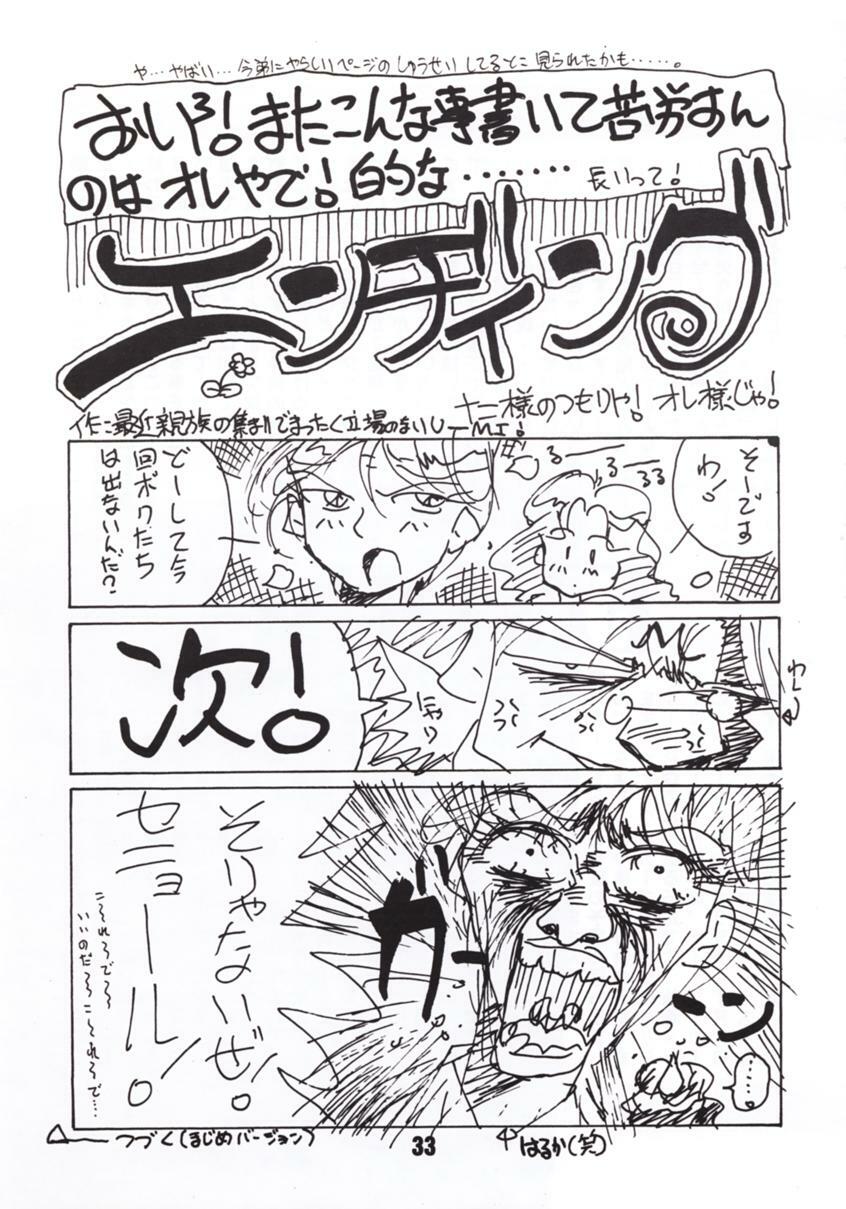 や…やばい…今弟にやらしいページのしゅうせいしてるとこ見られたかも……。
おいろ!またこんな事書いて苦労すん
のはオレやで!的な・・・・・・・ 長いって!
エンディング
十二様のつもりや!オレ様じゃ!
作:最近親族の集まりでまったく立場のまいU-MI!
そーです
わ!
るーーるーーるる
どーして今
回ボクだち
は出ないんだ?
次!
にやり
わーん
そりゃないぜ!。
セニョール。
ガーー
はるか(笑)
つづく(まじめバージョン)
33